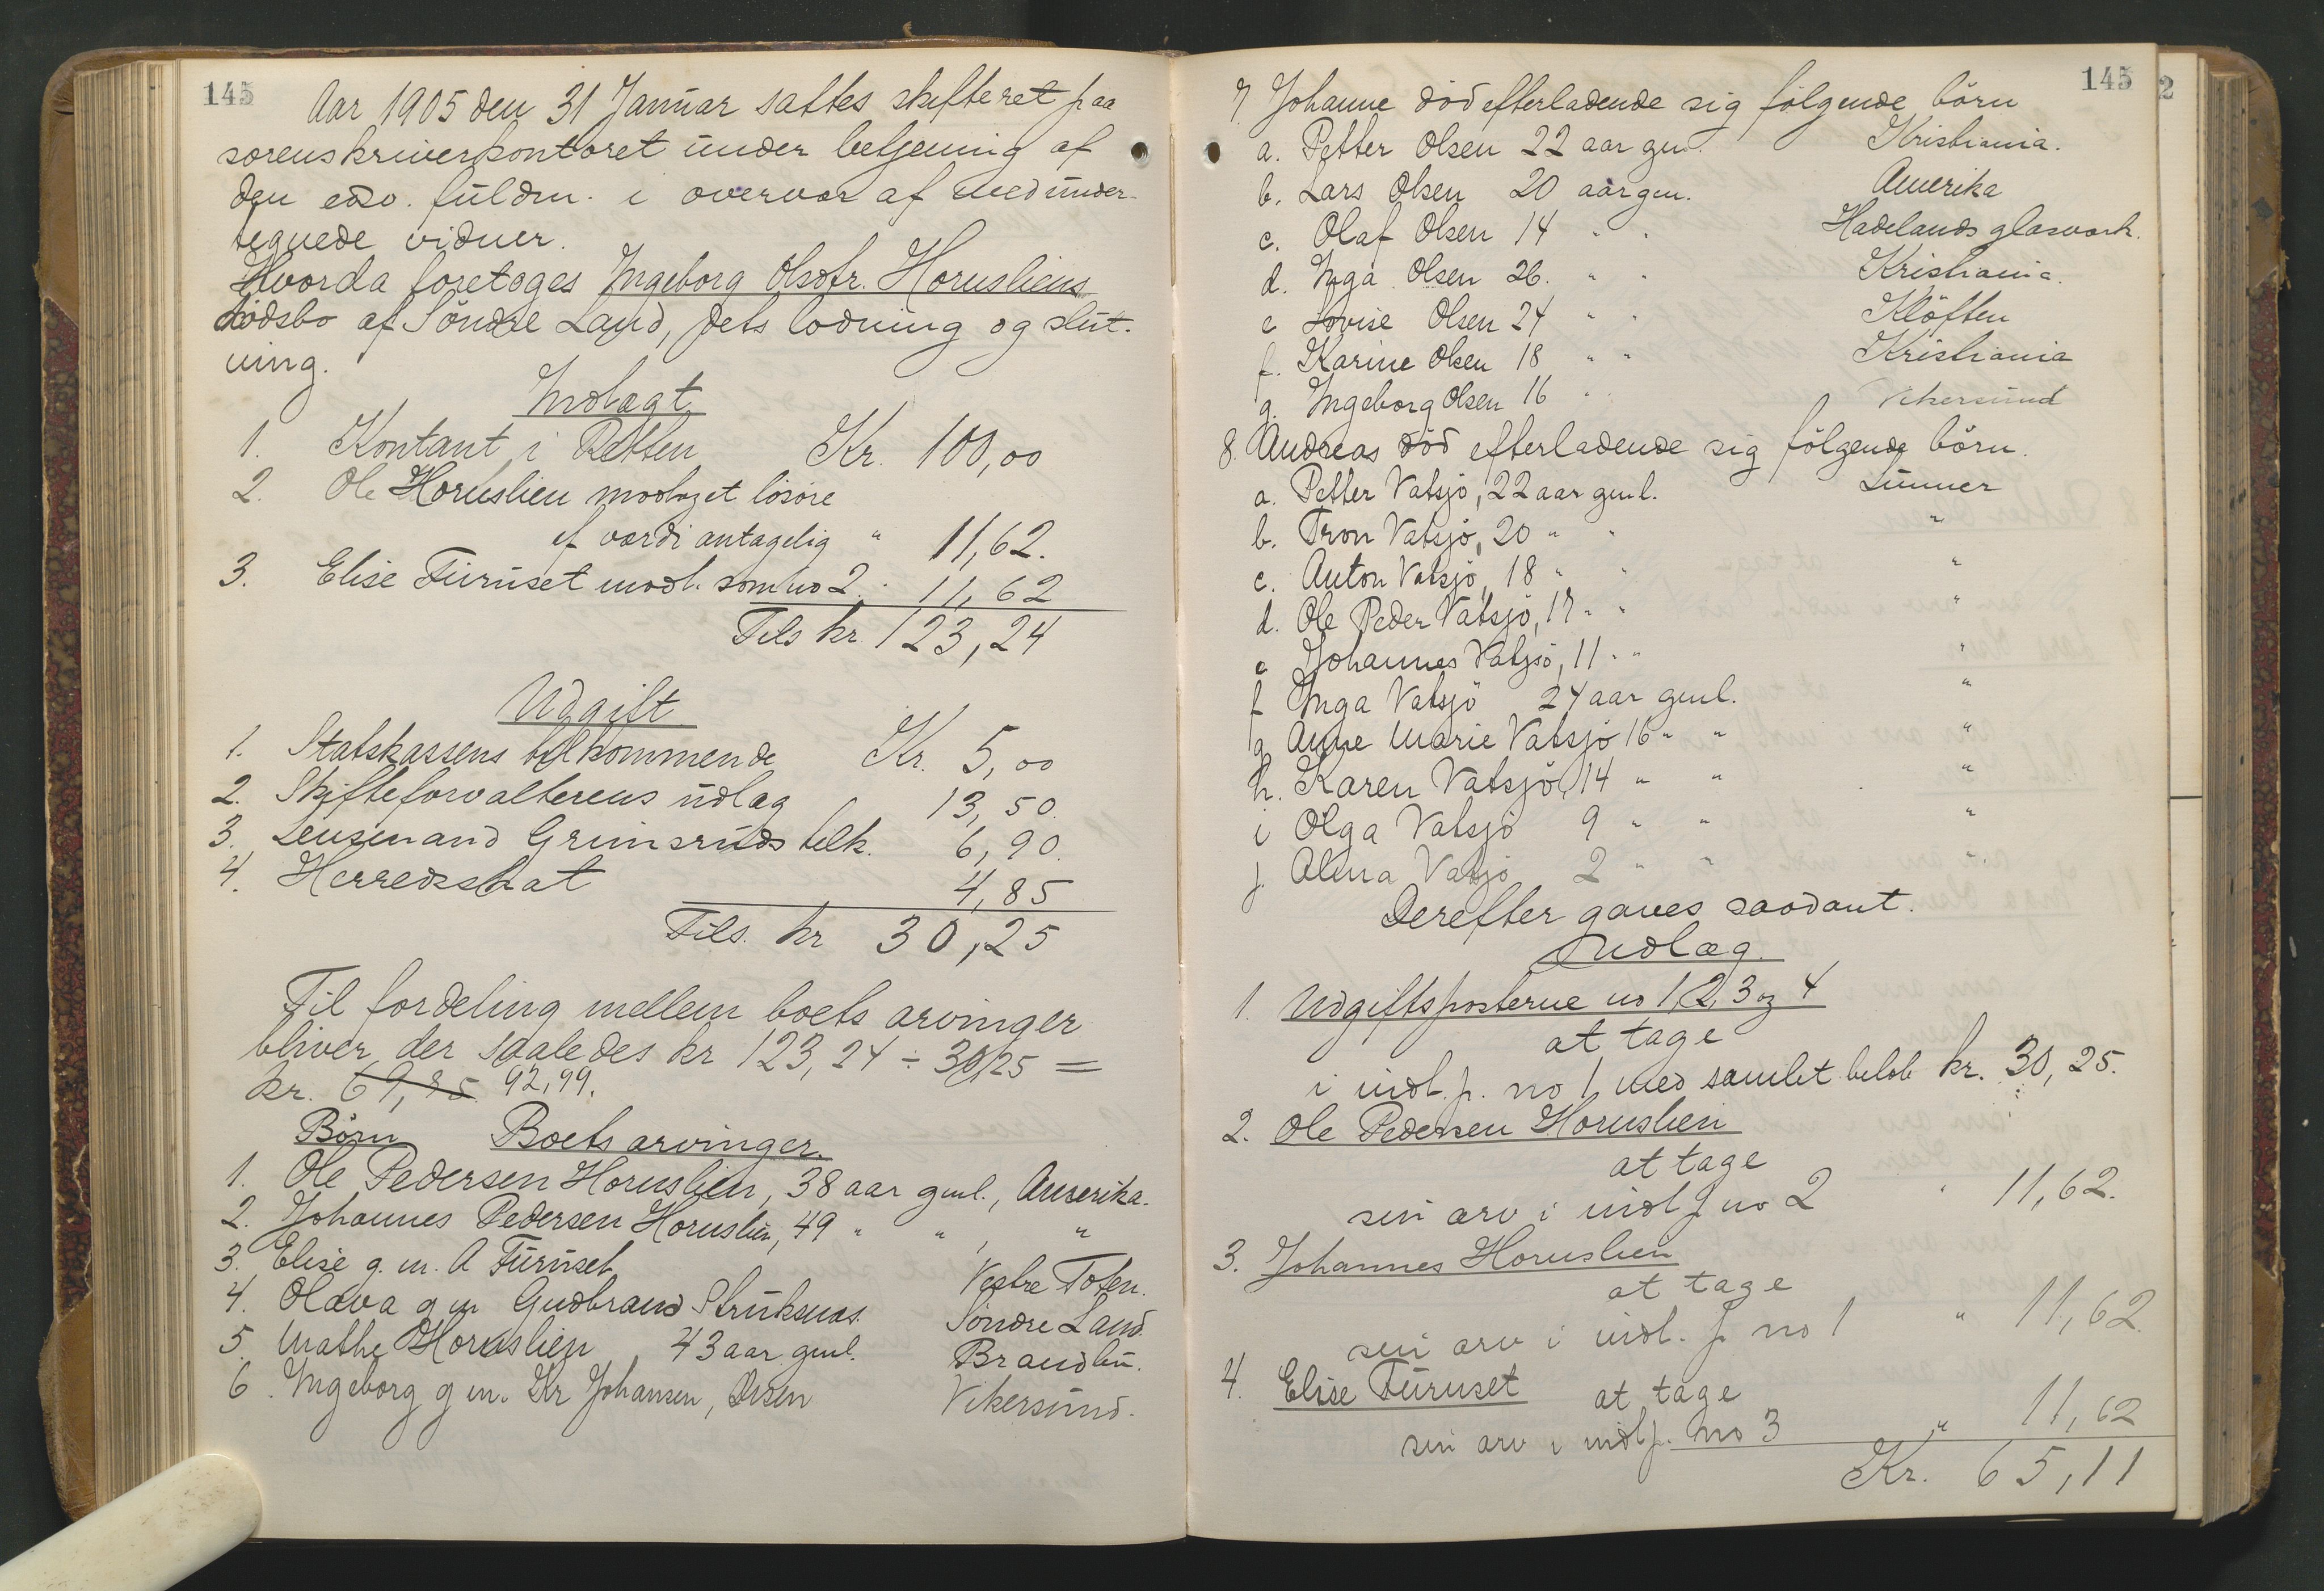 145
Aar 1905 den 31 Januar sattes skifteret paa
sorenskriverkontoret under betjening af
den edsv. fuldm. i overvær af medunder-
tegnede vidner.
Hvorda foretoges Ingeborg Olsdtr. Hornsliens
dödsbo af Söndre Land, dets lodning og slut-
ning.
Indtægt
1. Kontant i Retten Kr. 100,00
2. Ole Hornslien modtaget lösöre
af værdi antagelig " 11,62.
3. Elise Furuset modt. som no 2. " 11,62
Tils kr. 123,24
Udgift
1. Statskassens tilkommende Kr. 5,00
2. Skifteforvalterens udlæg 13,50.
3. Lensmand Grimsruds tilk. 6,90.
4. Herredsskat 4,85
Tils. kr 30,25
Til fordeling mellem boets arvinger
bliver der saaledes kr 123,24 ÷ 30,25 =
kr. 69,85 92,99.
Börn Boets arvinger.
1. Ole Pedersen Hornslien, 38 aar gml., Amerika.
2. Johannes Pedersen Hornslien, 49 " " , "
3. Elise g. m. A Furuset Vestre Toten.
4. Olava g m Gudbrand Struksnæs. Söndre Land.
5. Mathe Hornslien 43 aar gml. Brandbu.
6. Ingeborg g m. Kr Johansen, Vikersund.
145
2
7 Johanne död efterladende sig fölgende börn
a. Petter Olsen 22 aar gm. Kristiania.
b. Lars Olsen 20 aar gm. Amerika
c. Olaf Olsen 14 " " Hadelands glasværk.
d. Inga Olsen 26. " " Kristiania.
e Lovise Olsen 24 " " Klöften
f. Karine Olsen 18 " " Kristiania
g. Ingeborg Olsen 16 " Vikersund
8. Andreas död efterladende sig fölgende börn.
a. Petter Vatsjö, 22 aar gml. Lunner
b. Tron Vatsjö, 20 " " "
c. Anton Vatsjö, 18 " " "
d. Ole Peder Vatsjö, 17 " " "
e Johannes Vatsjö, 11 " " "
f Inga Vatsjö 24 aar gml. "
g Anne Marie Vatsjö 16 " " "
h. Karen Vatsjö, 14 " " "
i Olga Vatsjö 9 " " "
j. Alma Vatsjö 2 " " "
Derefter gaves saadant.
Udlæg.
1. Udgiftsposterne no 1, 2, 3 og 4
at tage
i indt. p. no 1 med samlet belöb kr. 30,25.
2. Ole Pedersen Hornslien
at tage
sin arv i indt p no 2 " 11,62.
3. Johannes Hornslien
at tage
sin arv i indt. p no 1 " 11,62.
4. Elise Furuset at tage
sin arv i indt p. no 3 " 11,62
Kr. 65,11